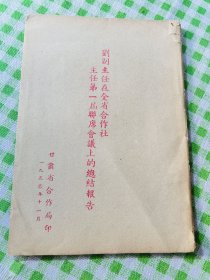 劉副主任在全省合作社
主任第一屆聯席會議上的總結報告
甘肅省合作局印
一九五三年十一月